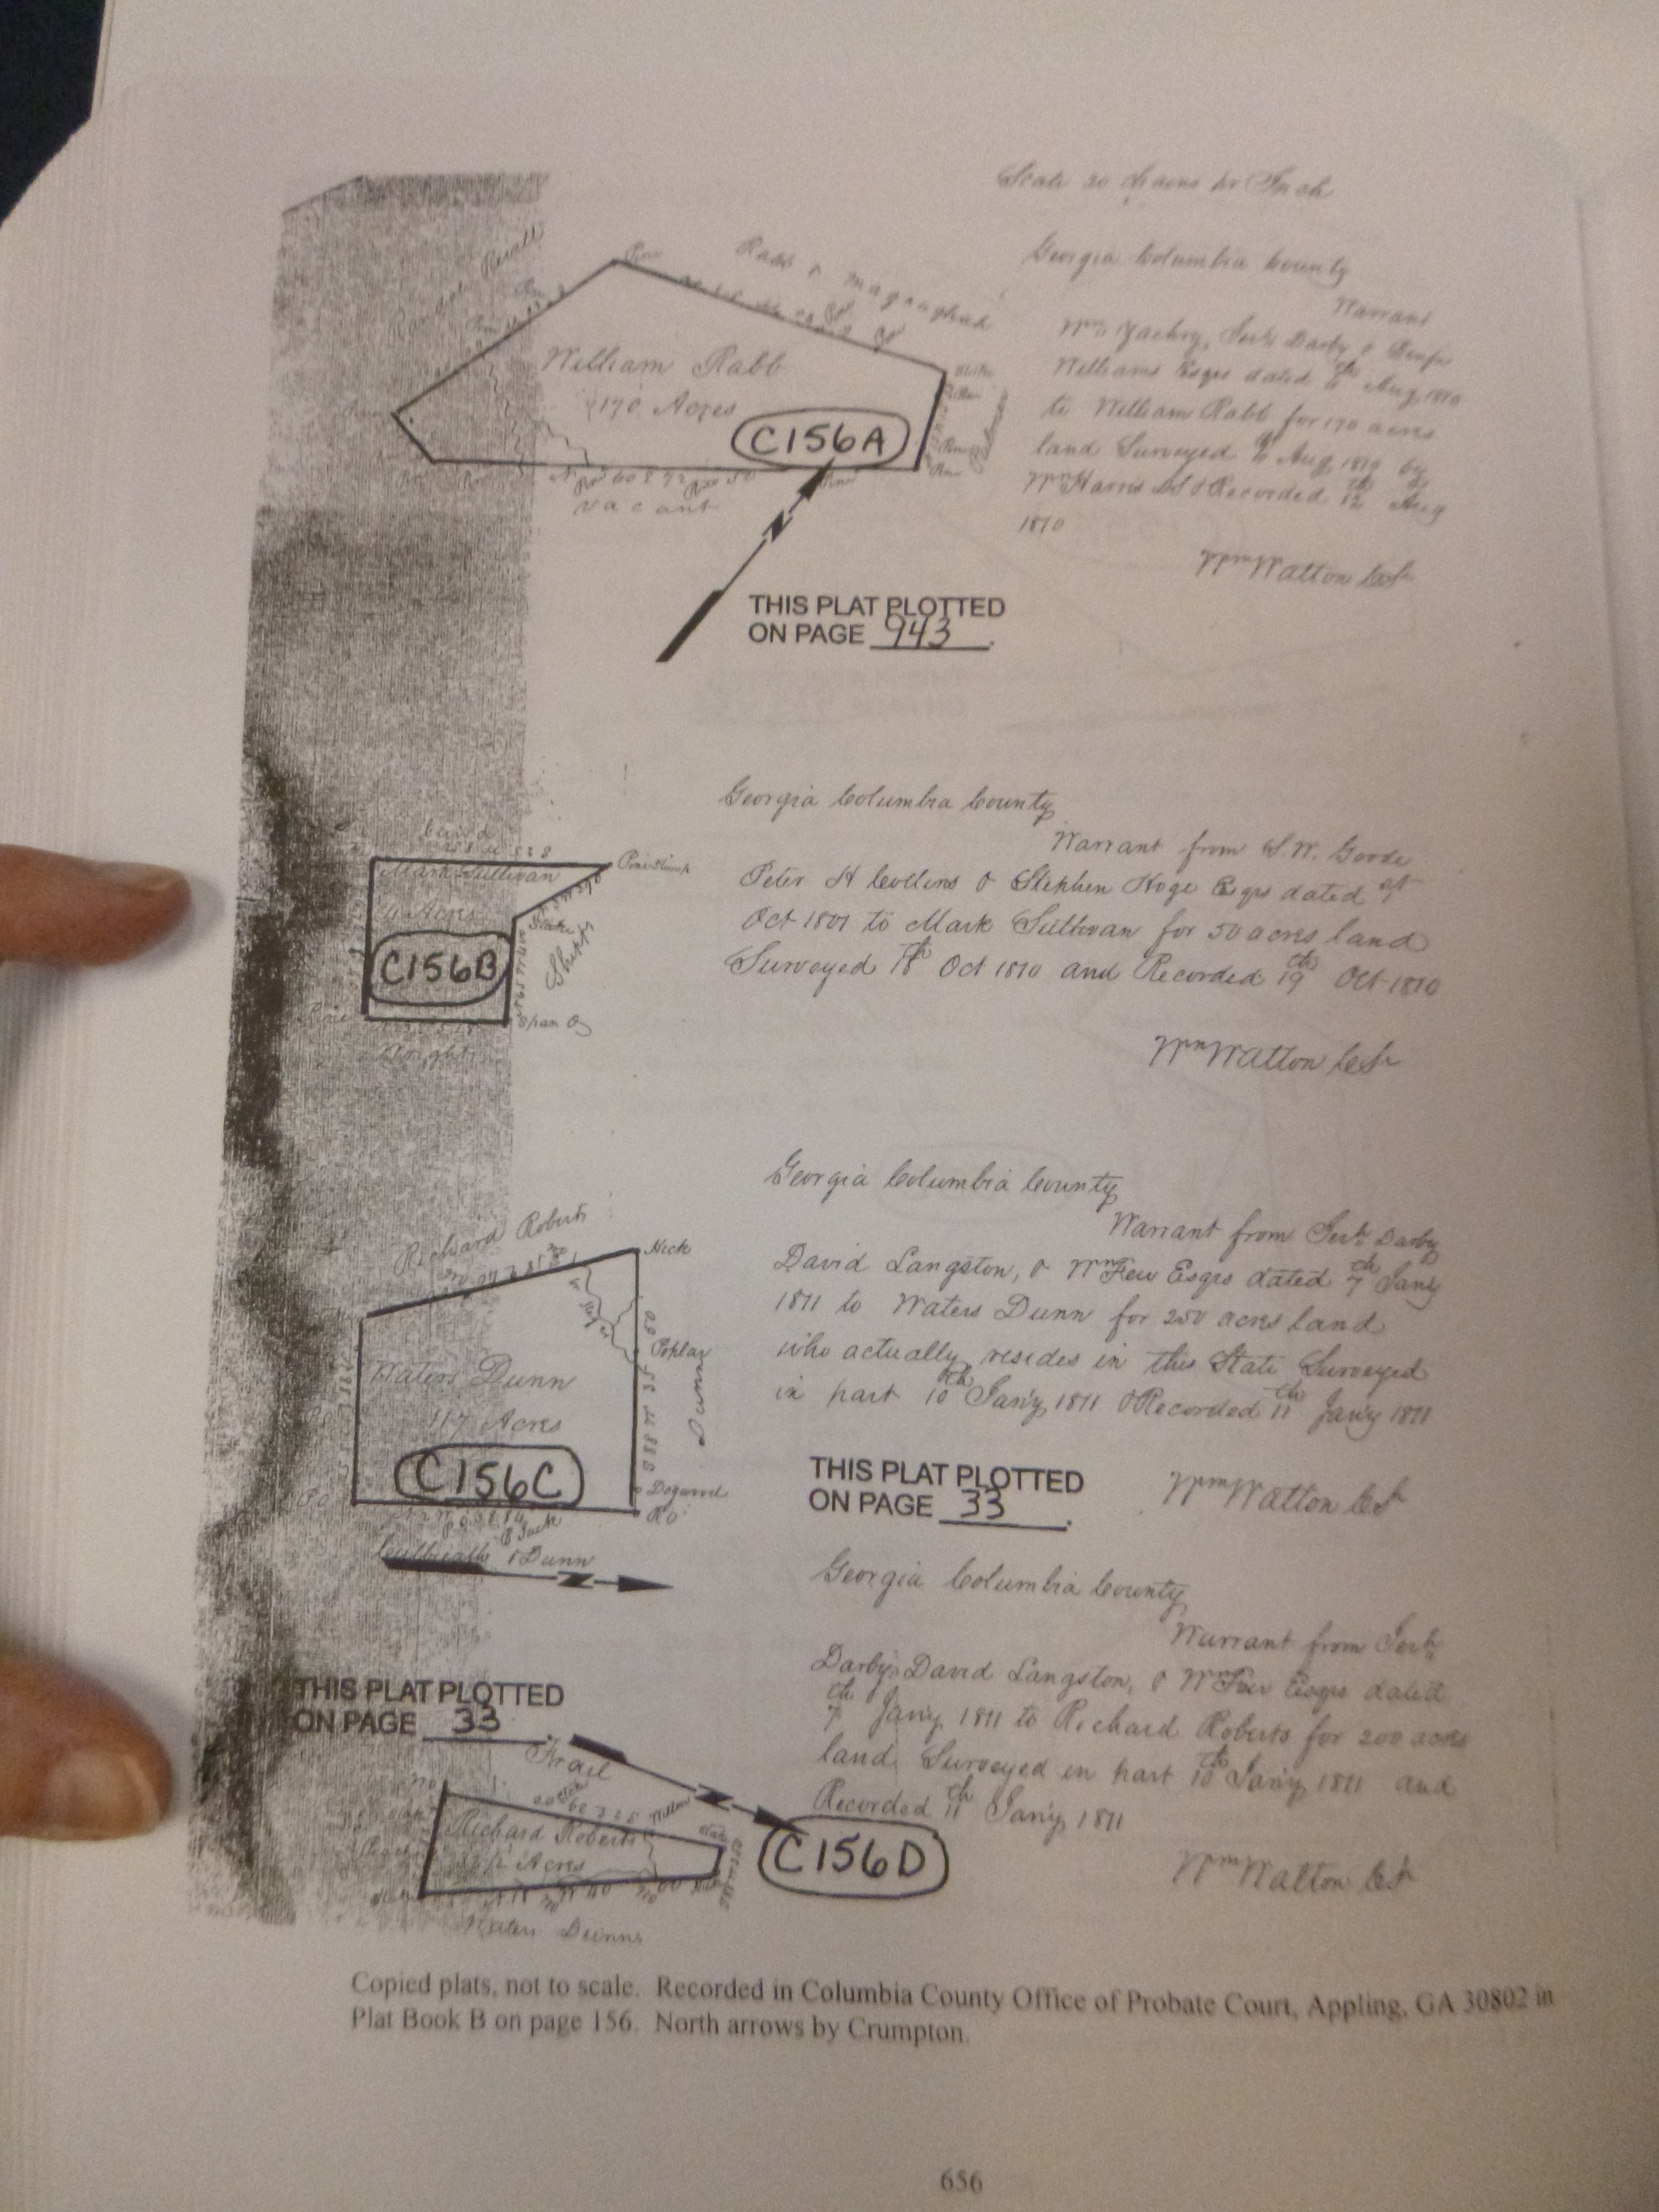 Scale 20 chains pr Inch
Georgia Columbia County
Warrant
Wm Zachry, Jerh Darby & Benja
Williams Esqrs dated Aug 1810
to William Rabb for 170 acres
land Surveyed Aug 1810 by
Wm Harris DS & Recorded 12th Aug
1810
Wm Watton
Rabb &
William Rabb
170 Acres
C156A
Pine
vacant
N
THIS PLAT PLOTTED
ON PAGE 943.
Georgia Columbia County
Warrant from S.W. Goode
Peter H Collins & Stephen Hoge Esqrs dated
Oct 1801 to Mark Sullivan for 50 acres land
Surveyed 18th Oct 1810 and Recorded 19th Oct 1810
Wm Watton
Mark Sullivan
Acres
C156B
Pine Stump
Stake
Span O
Wright
Georgia Columbia County
Warrant from Jerh Darby
David Langston, & Wm Few Esqrs dated 7th Jany
1811 to Waters Dunn for 250 acres land
who actually resides in this State Surveyed
in part 10th Jan'y 1811 & Recorded 11th Jan'y 1811
Wm Watton
Richard Roberts
Hick
Poplar
Dunn
Waters Dunn
117 Acres
C156C
Dogwood
R O
& Dunn
N
THIS PLAT PLOTTED
ON PAGE 33.
Georgia Columbia County
Warrant from Jerh
Darby David Langston, & Wm Few Esqrs dated
7th Jan'y 1811 to Richard Roberts for 200 acres
land Surveyed in part 10th Jan'y 1811 and
Recorded 11th Jan'y 1811
Wm Watton
THIS PLAT PLOTTED
ON PAGE 33.
N
Richard Roberts
Acres
C156D
Waters Dunns
Copied plats, not to scale. Recorded in Columbia County Office of Probate Court, Appling, GA 30802 in
Plat Book B on page 156. North arrows by Crumpton.
656